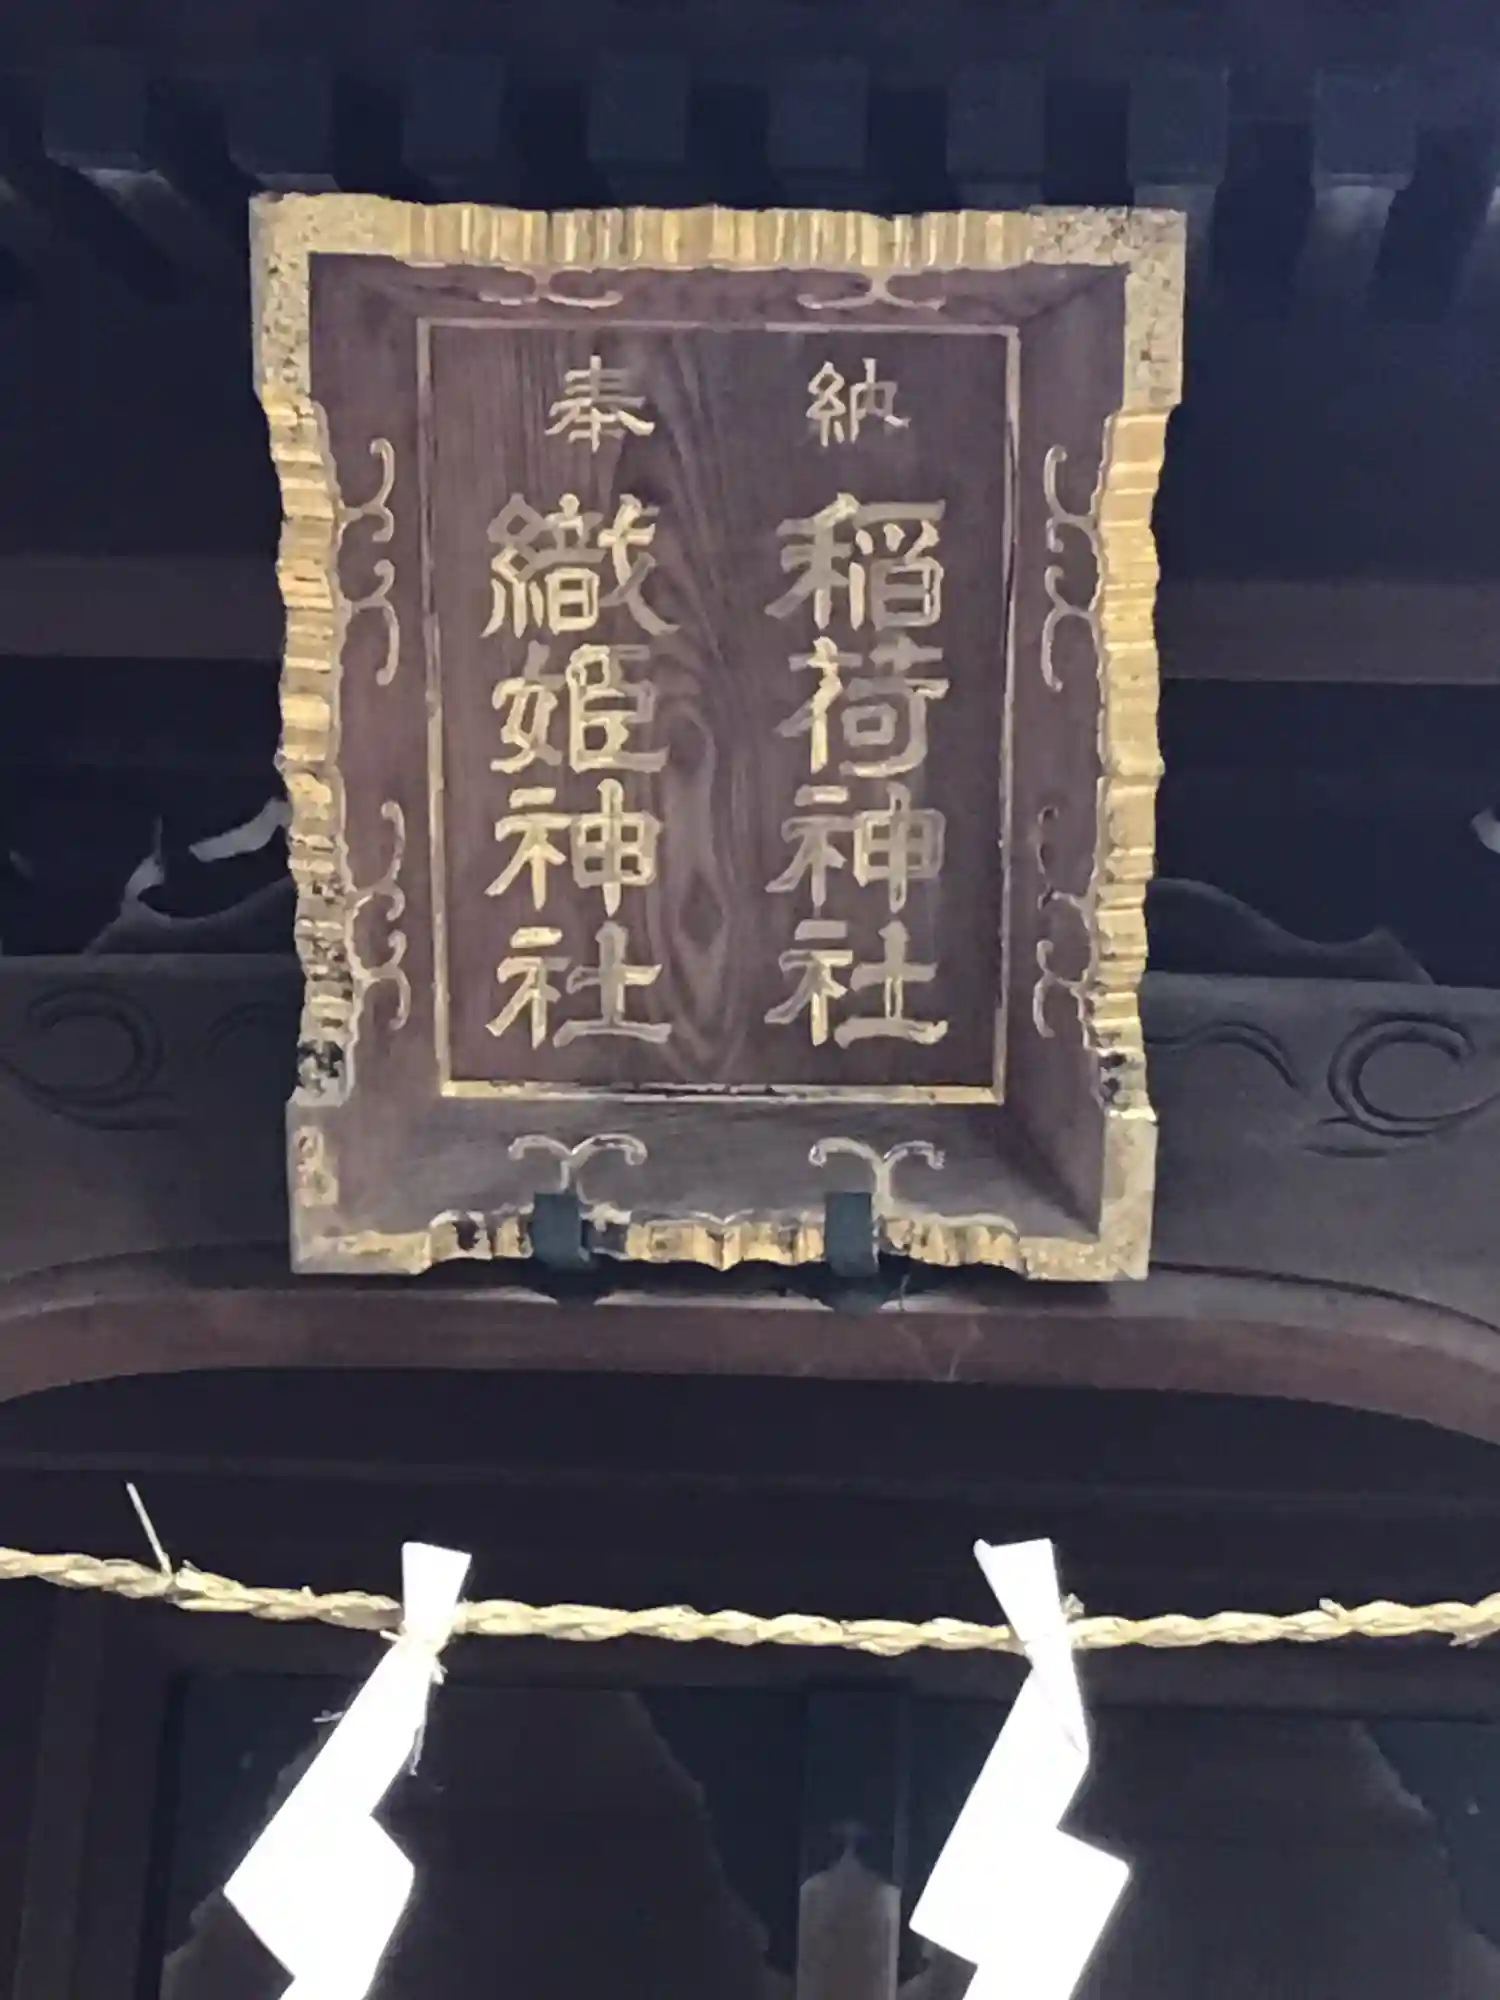 奉納
稲荷神社
織姫神社